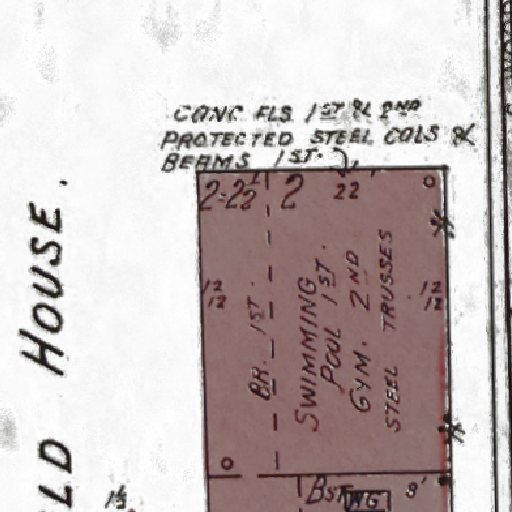 CONC. FLS. 1ST & 2ND
PROTECTED STEEL COLS &
BEAMS 1ST.
2=22' 2 22'
12
12
12
12
BR. 1ST.
SWIMMING
POOL 1ST.
GYM. 2ND
STEEL TRUSSES
HOUSE.
LD
BST
WG